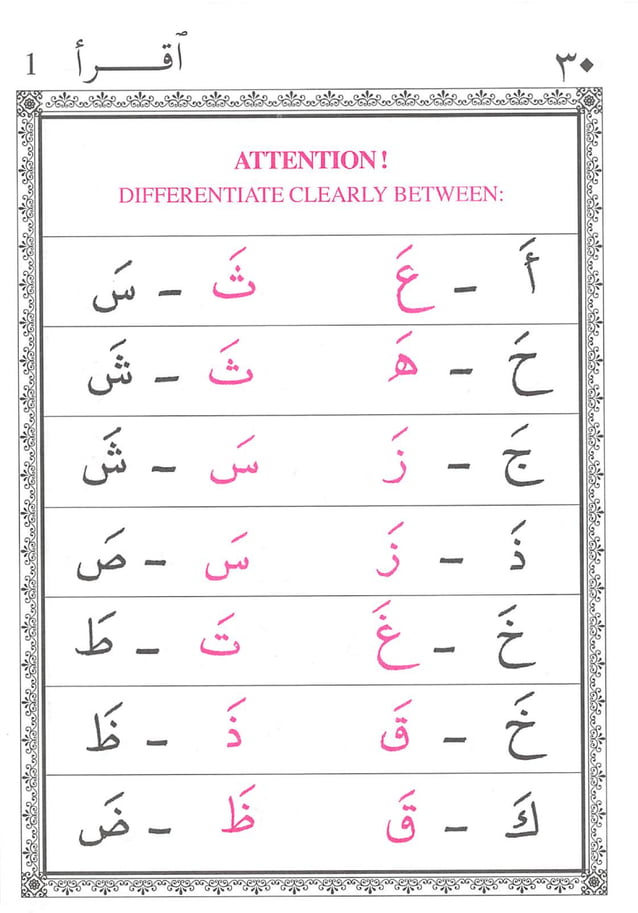 ٣٠ ٱقـــــرأ 1
ATTENTION!
DIFFERENTIATE CLEARLY BETWEEN:
أَ - عَ ثَ - سَ
حَ - هَ ثَ - شَ
جَ - زَ سَ - شَ
ذَ - زَ سَ - صَ
خَ - غَ تَ - طَ
خَ - قَ ذَ - ظَ
كَ - قَ ظَ - ضَ